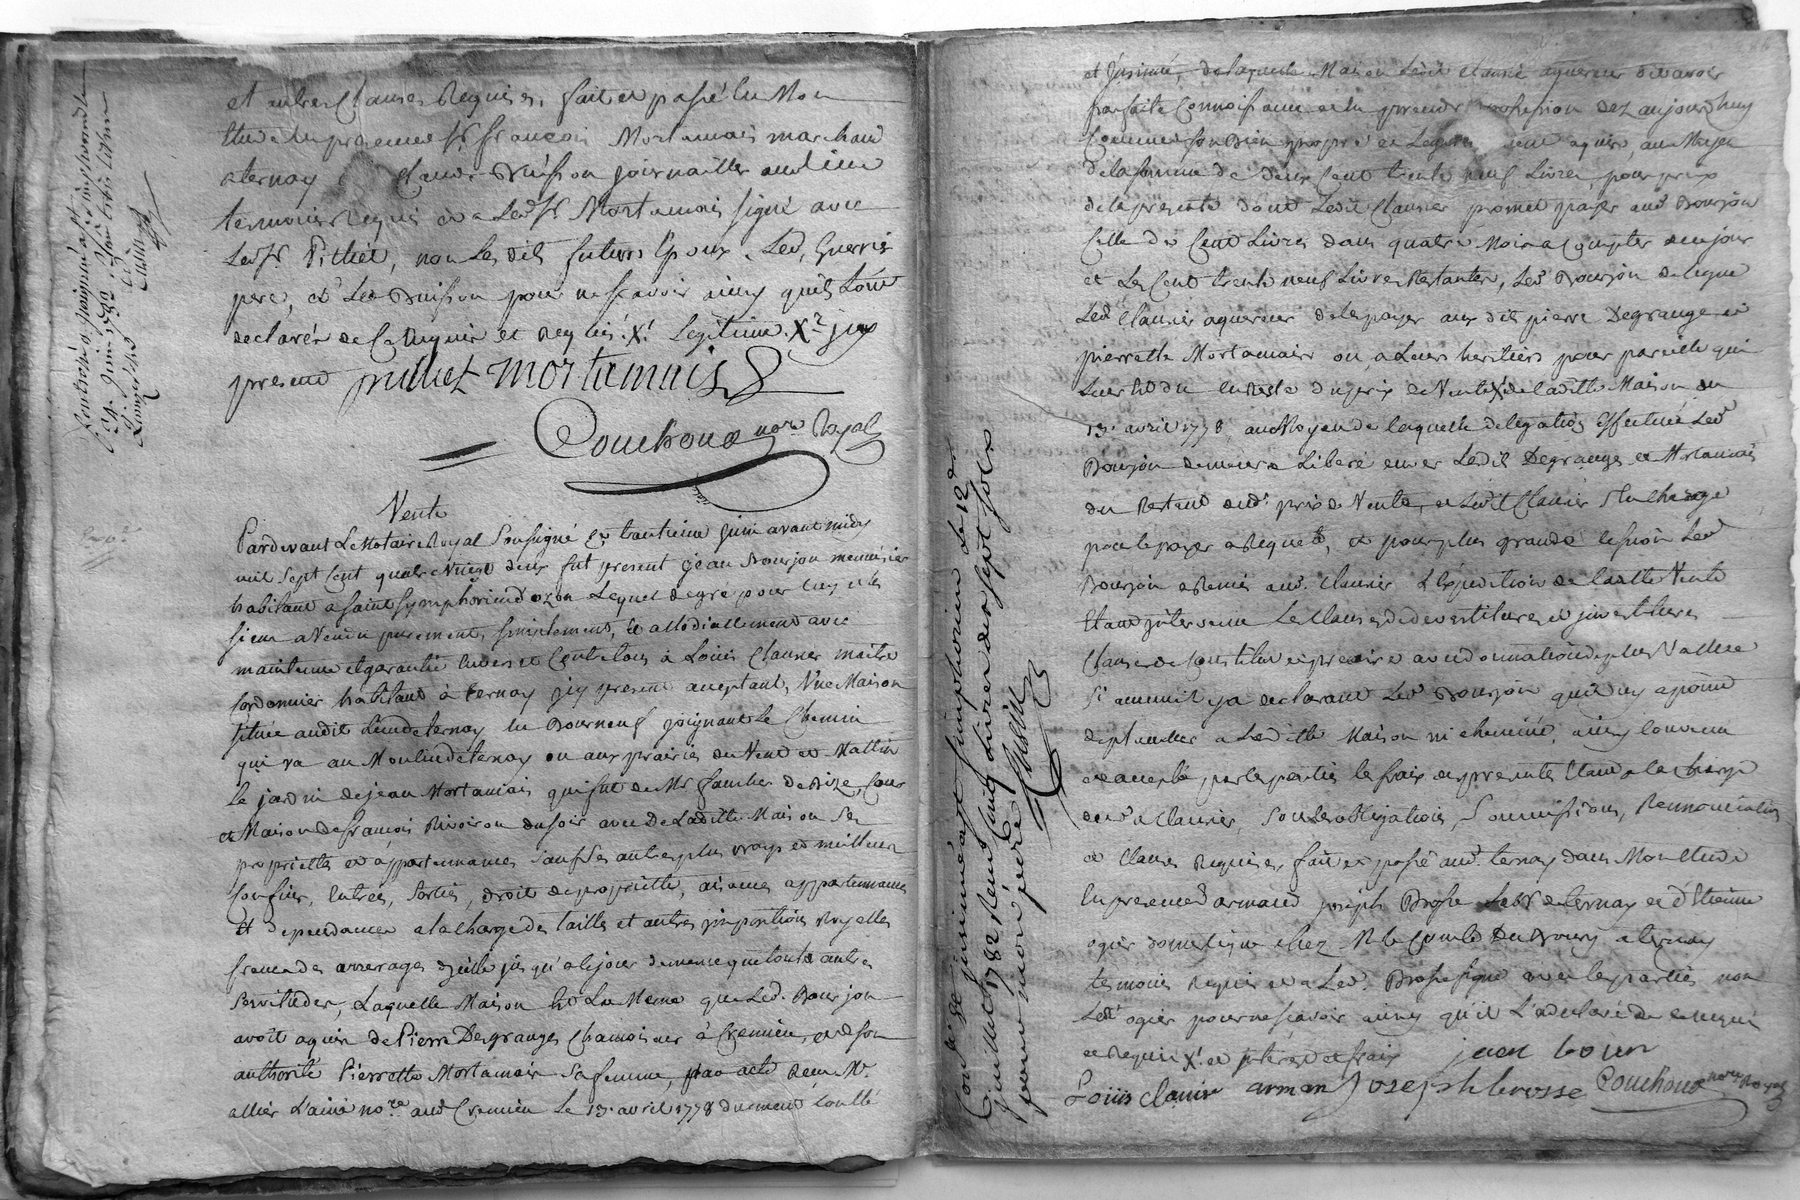 et autres Clauses Requises, fait et passé en Mon
Etude En presence Sr. françois Mortamais marchand
a ternay Claude Buisson journaillier audit lieu
temoins Requis et a Led. Sr. Mortamais signé avec
Led. Sr. non Les dits futurs Epoux, Led. Guerrier
pere, et Led. Buisson pour ne scavoir ainsy qu'ils L'ont
declarés de Ce Enquis et Requis. X1 Legitime. X2 jcy
present Mortamais
Couchoud nore. Royal
Vente
Pardevant Le Notaire Royal Soussigné Ce trentieme juin avant midy
mil Sept Cent quatre Vingt deux fut present jean Bourjon menuisier
habitant a Saint Symphorien d'ozon Lequel de gré pour luy et les
siens a Vendu purement, simplement, et allodiallement avec
maintenue et garantie Envers et Contre tous à Louis Claurier maitre
Cordonnier habitant à ternay jcy present acceptant, Une Maison
Située audit Lieu de ternay En Bourneuf joignant Le Chemin
qui va au Moulin de ternay ou aux prairies du Vent et Mattin
Le jardin de jean Mortamais qui fut de Mr. Cour
et Maison de françois Rivoiron du soir avec De Laditte Maison Ses
proprietés et appartenances Sauf Ses autres plus vrays et meilleurs
Confins, Entrées, Sorties, droit de proprietté, aisances appartenances
Et dependances a la Charge des tailles et autres jmpositions Royalles
franche des arrerages d'jcelles jusqu'a le jour de meme que toutes autres
Servitudes, Laquelle Maison Est La Meme que Led. Bourjon
avoit aquise de Pierre Degranges Chamoiseur à Cremieu, et de son
authorité Pierrette Mortamais Sa femme, par acte Recu Me.
allier L'ainé nore. aud. Cremieu Le 13. avril 1778 duement Conllé
et Jnsinué, de laquelle Maison Ledit Claurier aquereur dit avoir
parfaite Connoissance et En prendre possession dez aujourd'huy
Comme Son Bien propre et aquis, au Moyen
de la somme de deux Cent trente neuf Livres, pour prix
de la presente dont Ledit Claurier promet payer aud. Bourjon
Celle de Cent Livres dans quatre Mois a Compter de ce jour
et Les Cent trente neuf Livres Restantes, Led. Bourjon delegue
Led. Claurier aquereur de les payer aux dits pierre Degranges et
pierrette Mortamais ou a Leurs heritiers pour pareille qui
Leur Est due En Reste du prix de Vente X1 de laditte Maison du
13. avril 1778, au Moyen de laquelle delegation Effectuée Led.
Bourjon demeure Liberé Envers Lesdits Degranges et Mortamais
du Restant dud. prix de Vente, et Ledit Claurier S'En Charge
pour le payer a Requette, et pour plus grande Led.
Bourjon a Remis aud. Claurier L'Expedition de laditte Vente
Etant jntervenu Les Clauses de devestitures et jnvestitures
Clause de Constitut et precaire avec donnation de plus Vallue
Si aucune y a declarant Led. Bourjon qu'il n'y a point
de placards a Laditte Maison ni cheminée, ainsy Convenu
et accepté par les parties les frais des presentes Etant a la Charge
dud. Claurier, Sous les obligations, Soumissions, Rennonciations
et Clauses Requises, fait et passé aud. ternay dans Mon Etude
En presence d'armand joseph Brosse de ternay et d'Etienne
ogier domestique chez Mr le Comte Du Bourg a ternay
temoins Requis et a Led. Brosse signé avec les parties non
Led. ogier pour ne scavoir ainsy qu'il L'a declaré de ce Enquis
et Requis X1 et jnterets et frais jean bour
Louis claurier arman Joseph brosse Couchoud nore Royal
Controlé et jnsinué a St. Simphorien Le 12 de
juillet 1782 Recu Cinq Livres dix sept sols